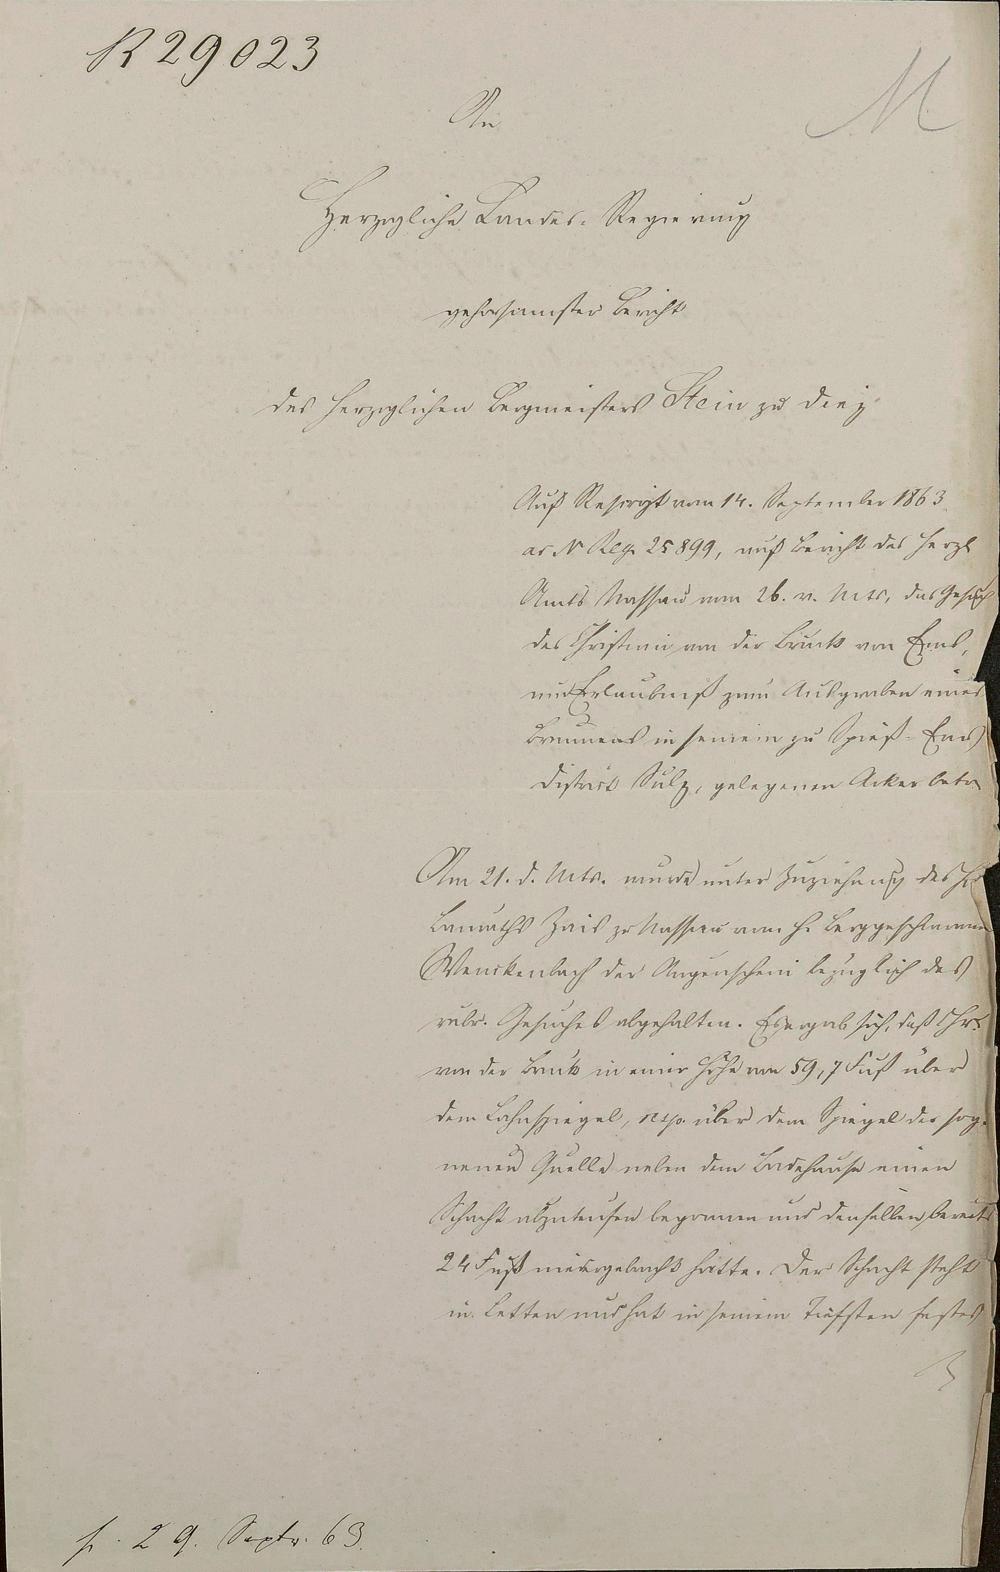 R 29023
M
An
Herzogliche Landes-Regierung
gehorsamster Bericht
des Herzoglichen Bergmeisters Stein zu Diez
Auf Rescript vom 14. September 1863
ac N Reg. 25899, auf Bericht des Herzl
Amts Nassau vom 26. v. Mts, das Gesuch
des Christian von der Bruck von Ems,
um Erlaubniß zum Ausgraben eines
Brunnens in seinem zu Spieß-Ems
District Sulz, gelegenen Acker betr
Am 21. d. Mts. wurde unter Zuziehung des H
Bauraths Zais zu Nassau vom H. Berggeschworenen
Wenckenbach der Augenschein bezüglich des
rubr. Gesuches abgehalten. Es ergab sich, daß Chr.
von der Bruck in einer Höhe von 59,7 Fuß über
dem Lahnspiegel, resp. über dem Spiegel der sog.
neuen Quelle neben dem Badehause einen
Schacht abzuteufen begonnen und denselben bereits
24 Fuß niedergebracht hatte. Der Schacht steht
in Letten und hat in seinem Tiefsten festes
29. Septr. 63.